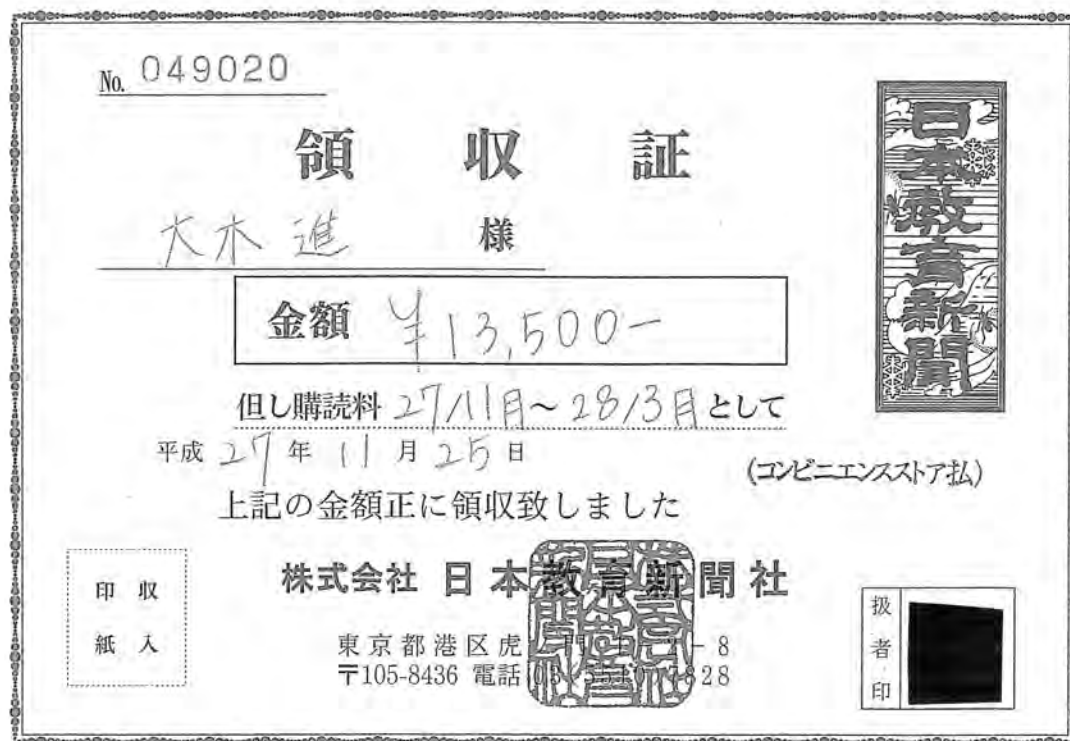 No. 049020
領収証
大木 進 様
金額 ¥13,500-
但し購読料 27/11月～28/3月として
平成 27年 11月 25日
(コンビニエンスストア払)
上記の金額正に領収致しました
株式会社 日本教育新聞社
東京都港区虎
〒105-8436 電話
日本教育新聞
収入
印紙
扱者印